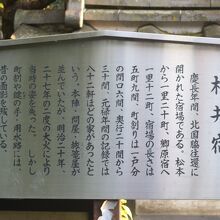 村井宿
慶長年間、北国脇往還に
開かれた宿場である。松本
から一里二十町、郷原宿へ
一里十二町、宿場の長さは
五町九間、町割りは一戸分
の間口六間、奥行二十間から
三十間、元禄年間の記録では
八十二軒ほどの家があったと
いう。本陣・問屋・旅籠屋が
並んでいたが、明治二十年、
二十七年の二度の大火により
当時の姿を失った。しかし
町割や鍵の手・用水路には、
昔の面影を残している。